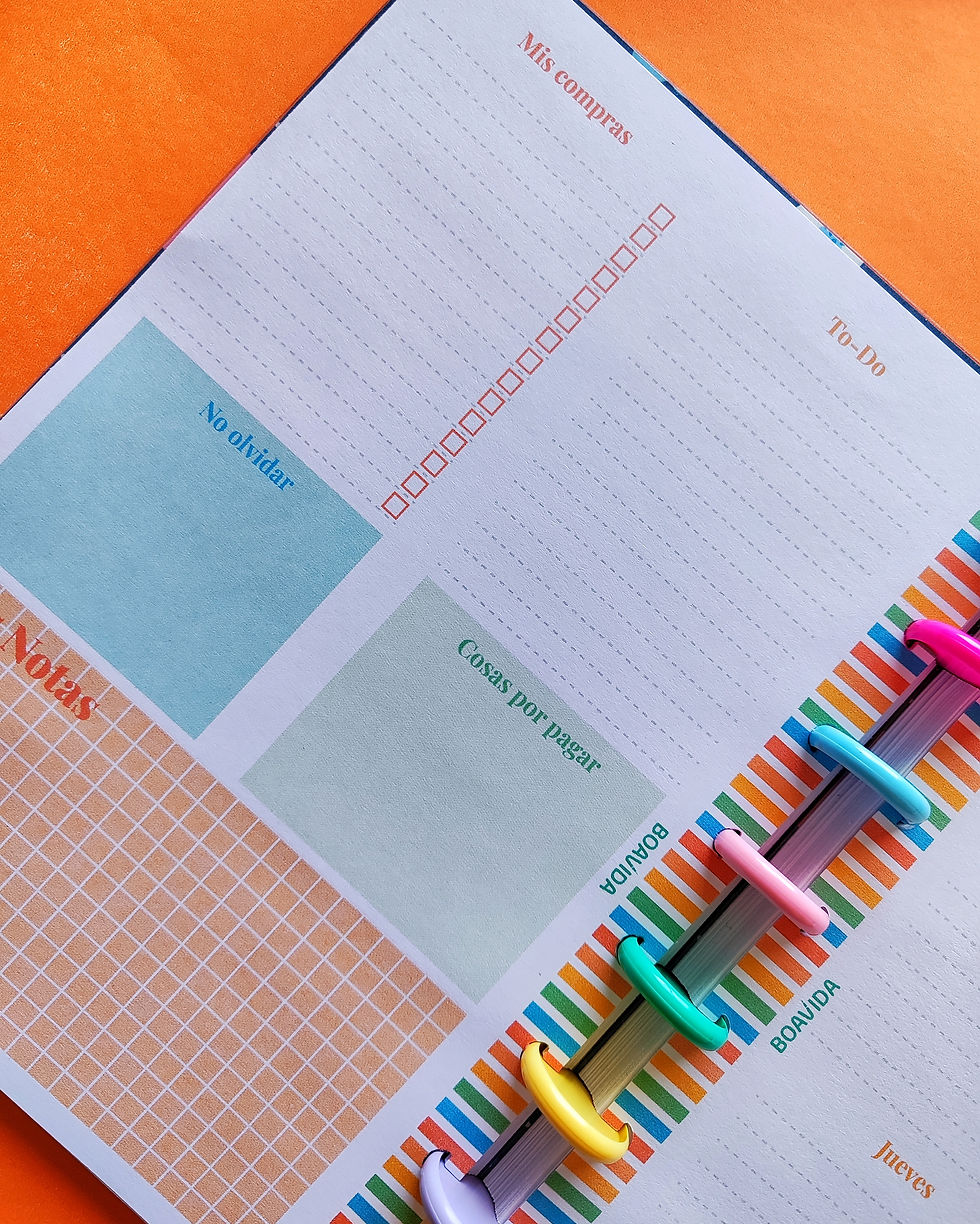 Mis compras
To-Do
No olvidar
Cosas por pagar
Notas
BOAVIDA
BOAVIDA
Jueves